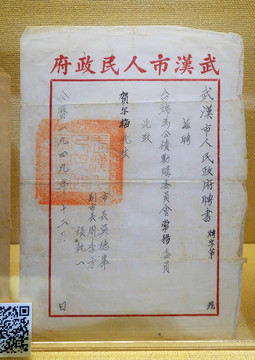 武漢市人民政府
武漢市人民政府聘書 聘字第 號
茲聘
台端為公債勸購委員會常務委員
此致
賀尔梅先生
市長 吳德峯
副市長 周季方
張執一
公曆一九四九年十二月 日